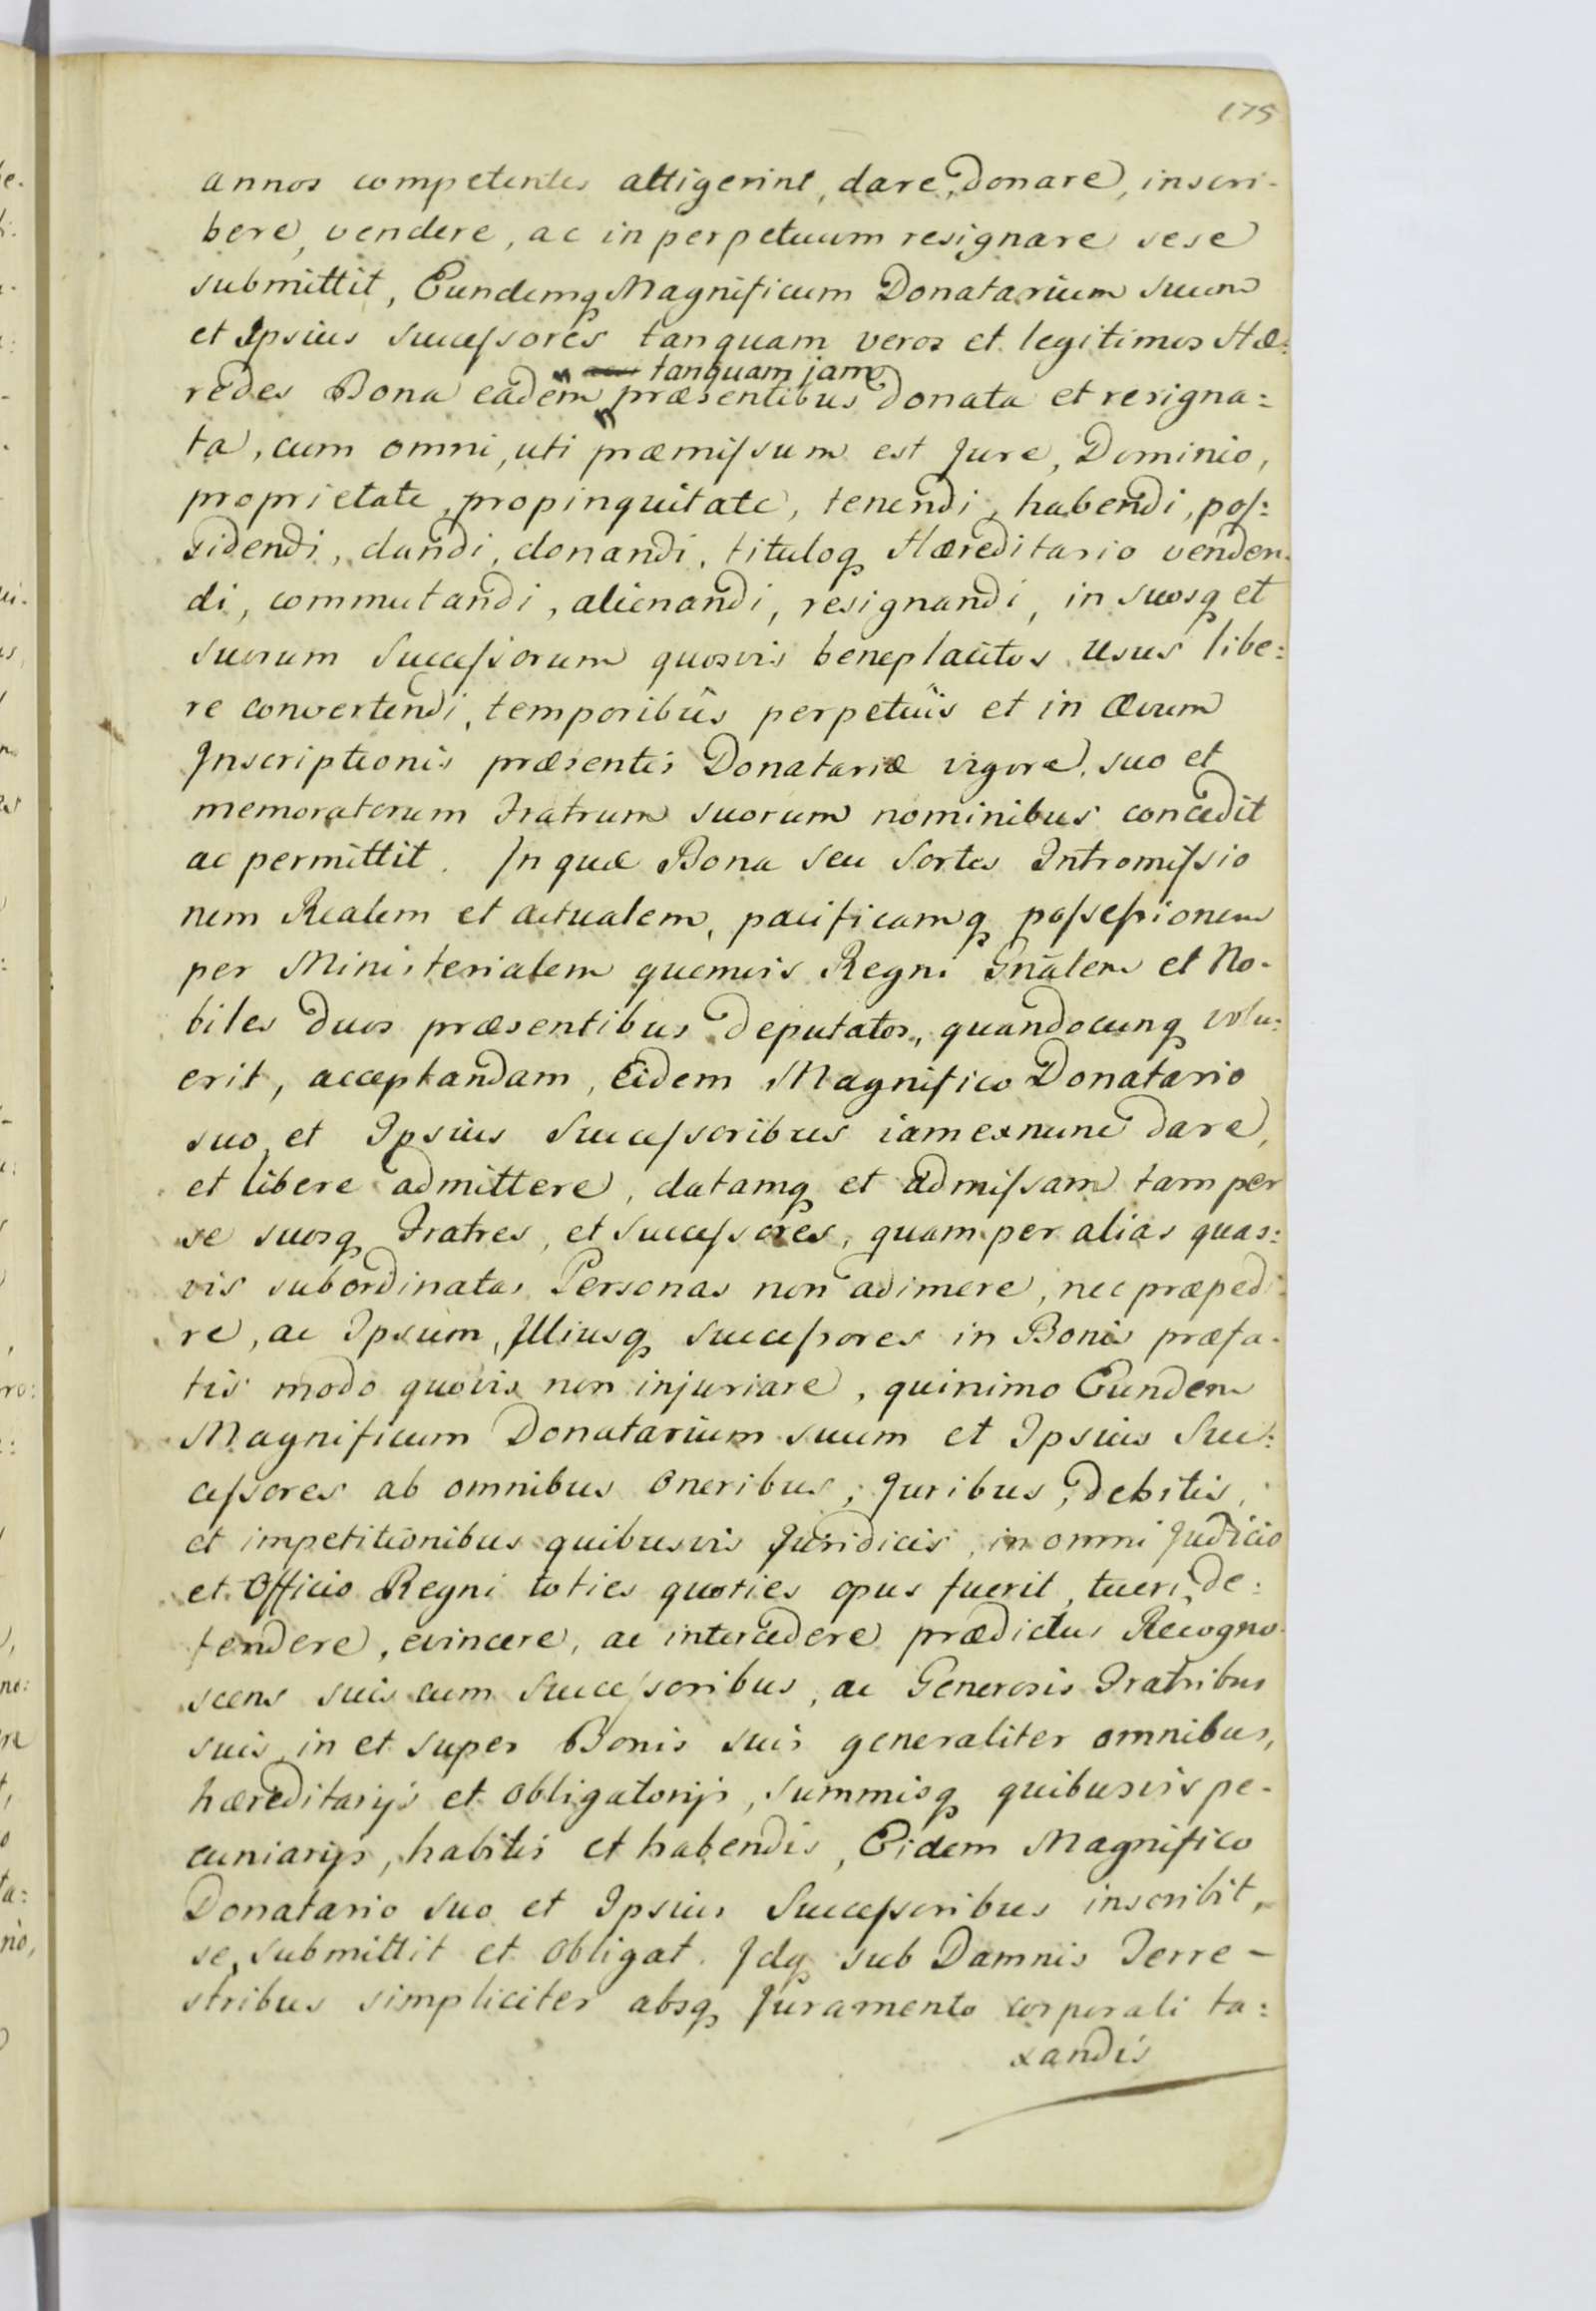 175
annos competentes attigerint, dare, donare, inscri-
bere, vendere, ac in perpetuum resignare sese
submittit, Eundemq Magnificum Donatarium suum
et Ipsius Successores tanquam veros et legitimos Hæ:
tanquam jam
redes Bona eadem præsentibus donata et resigna:
ta, cum omni, uti præmissum est Jure, Dominio,
proprietate, propinquitate, tenendi, habendi, pos:
sidendi, dandi, donandi, tituloq Hæreditario venden:
di, commutandi, alienandi, resignandi, in suosq et
suorum Successorum quosvis beneplacitos usus libe:
re convertendi, temporibus perpetuis et in ævum
Inscriptionis præsentis Donatariæ vigore, suo et
memoratorum Fratrum suorum nominibus concedit
ac permittit. In quæ Bona seu Sortes Intromissio
nem Realem et actualem, pacificamq possessionem
per Ministerialem quemvis Regni Gnãlem et No-
biles duos præsentibus deputatos, quandocunq volu:
erit, acceptandam, Eidem Magnifico Donatario
suo, et Ipsius Successoribus iamexnunc dare,
et libere admittere, datamq et admissam tam per
se suosq Fratres, et Successores, quam per alias quas:
vis subordinatas Personas non adimere, nec præpedi:
re, ac Ipsum, Illiusq Successores in Bonis præfa-
tis modo quovis non injuriare, quinimo Eundem
Magnificum Donatarium suum et Ipsius Suc:
cessores ab omnibus Oneribus, Juribus, Debitis,
et impetitionibus quibusvis Juridicis, in omni Judicio
et Officio Regni toties quoties opus fuerit, tueri, de:
fendere, evincere, ac intercedere prædictus Recogno-
scens suis cum Successoribus, ac Generosis Fratribus
suis, in et super Bonis suis generaliter omnibus,
hæreditarijs et obligatorijs, summisq quibusvis pe-
cuniarijs, habitis et habendis, Eidem Magnifico
Donatario suo et Ipsius Successoribus inscribit,
se, submittit et obligat. Idq sub Damnis Terre-
stribus simpliciter absq Juramento corporali ta:
xandis